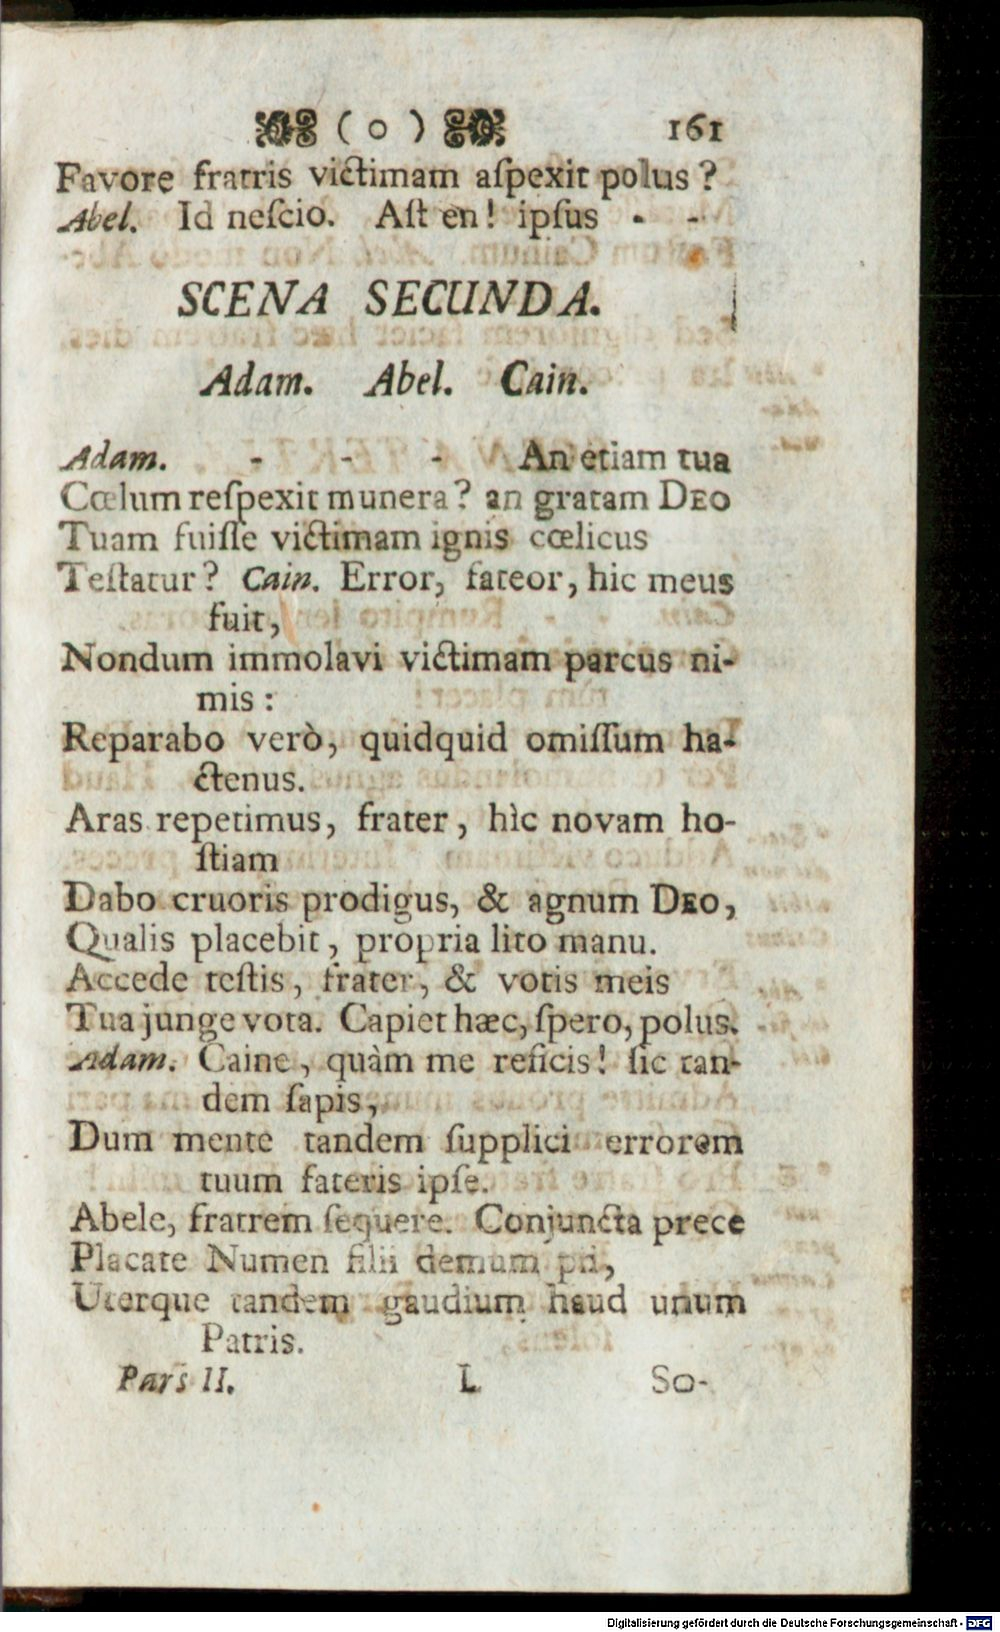 ( o ) 161
Favore fratris victimam aſpexit polus?
Abel. Id neſcio. Aſt en! ipſus - -
SCENA SECUNDA.
Adam. Abel. Cain.
Adam. - - - An etiam tua
Cœlum reſpexit munera? an gratam DEO
Tuam fuiſſe victimam ignis cœlicus
Teſtatur? Cain. Error, fateor, hic meus
fuit,
Nondum immolavi victimam parcus ni-
mis:
Reparabo verò, quidquid omiſſum ha-
ctenus.
Aras repetimus, frater, hìc novam ho-
ſtiam
Dabo cruoris prodigus, & agnum DEO,
Qualis placebit, propria lito manu.
Accede teſtis, frater, & votis meis
Tua junge vota. Capiet hæc, ſpero, polus.
Adam. Caine, quàm me reficis! ſic tan-
dem ſapis,
Dum mente tandem ſupplici errorem
tuum fateris ipſe.
Abele, fratrem ſequere. Conjuncta prece
Placate Numen filii demum pii,
Uterque tandem gaudium haud unum
Patris.
Pars II. L So-
Digitalisierung gefördert durch die Deutsche Forschungsgemeinschaft - DFG